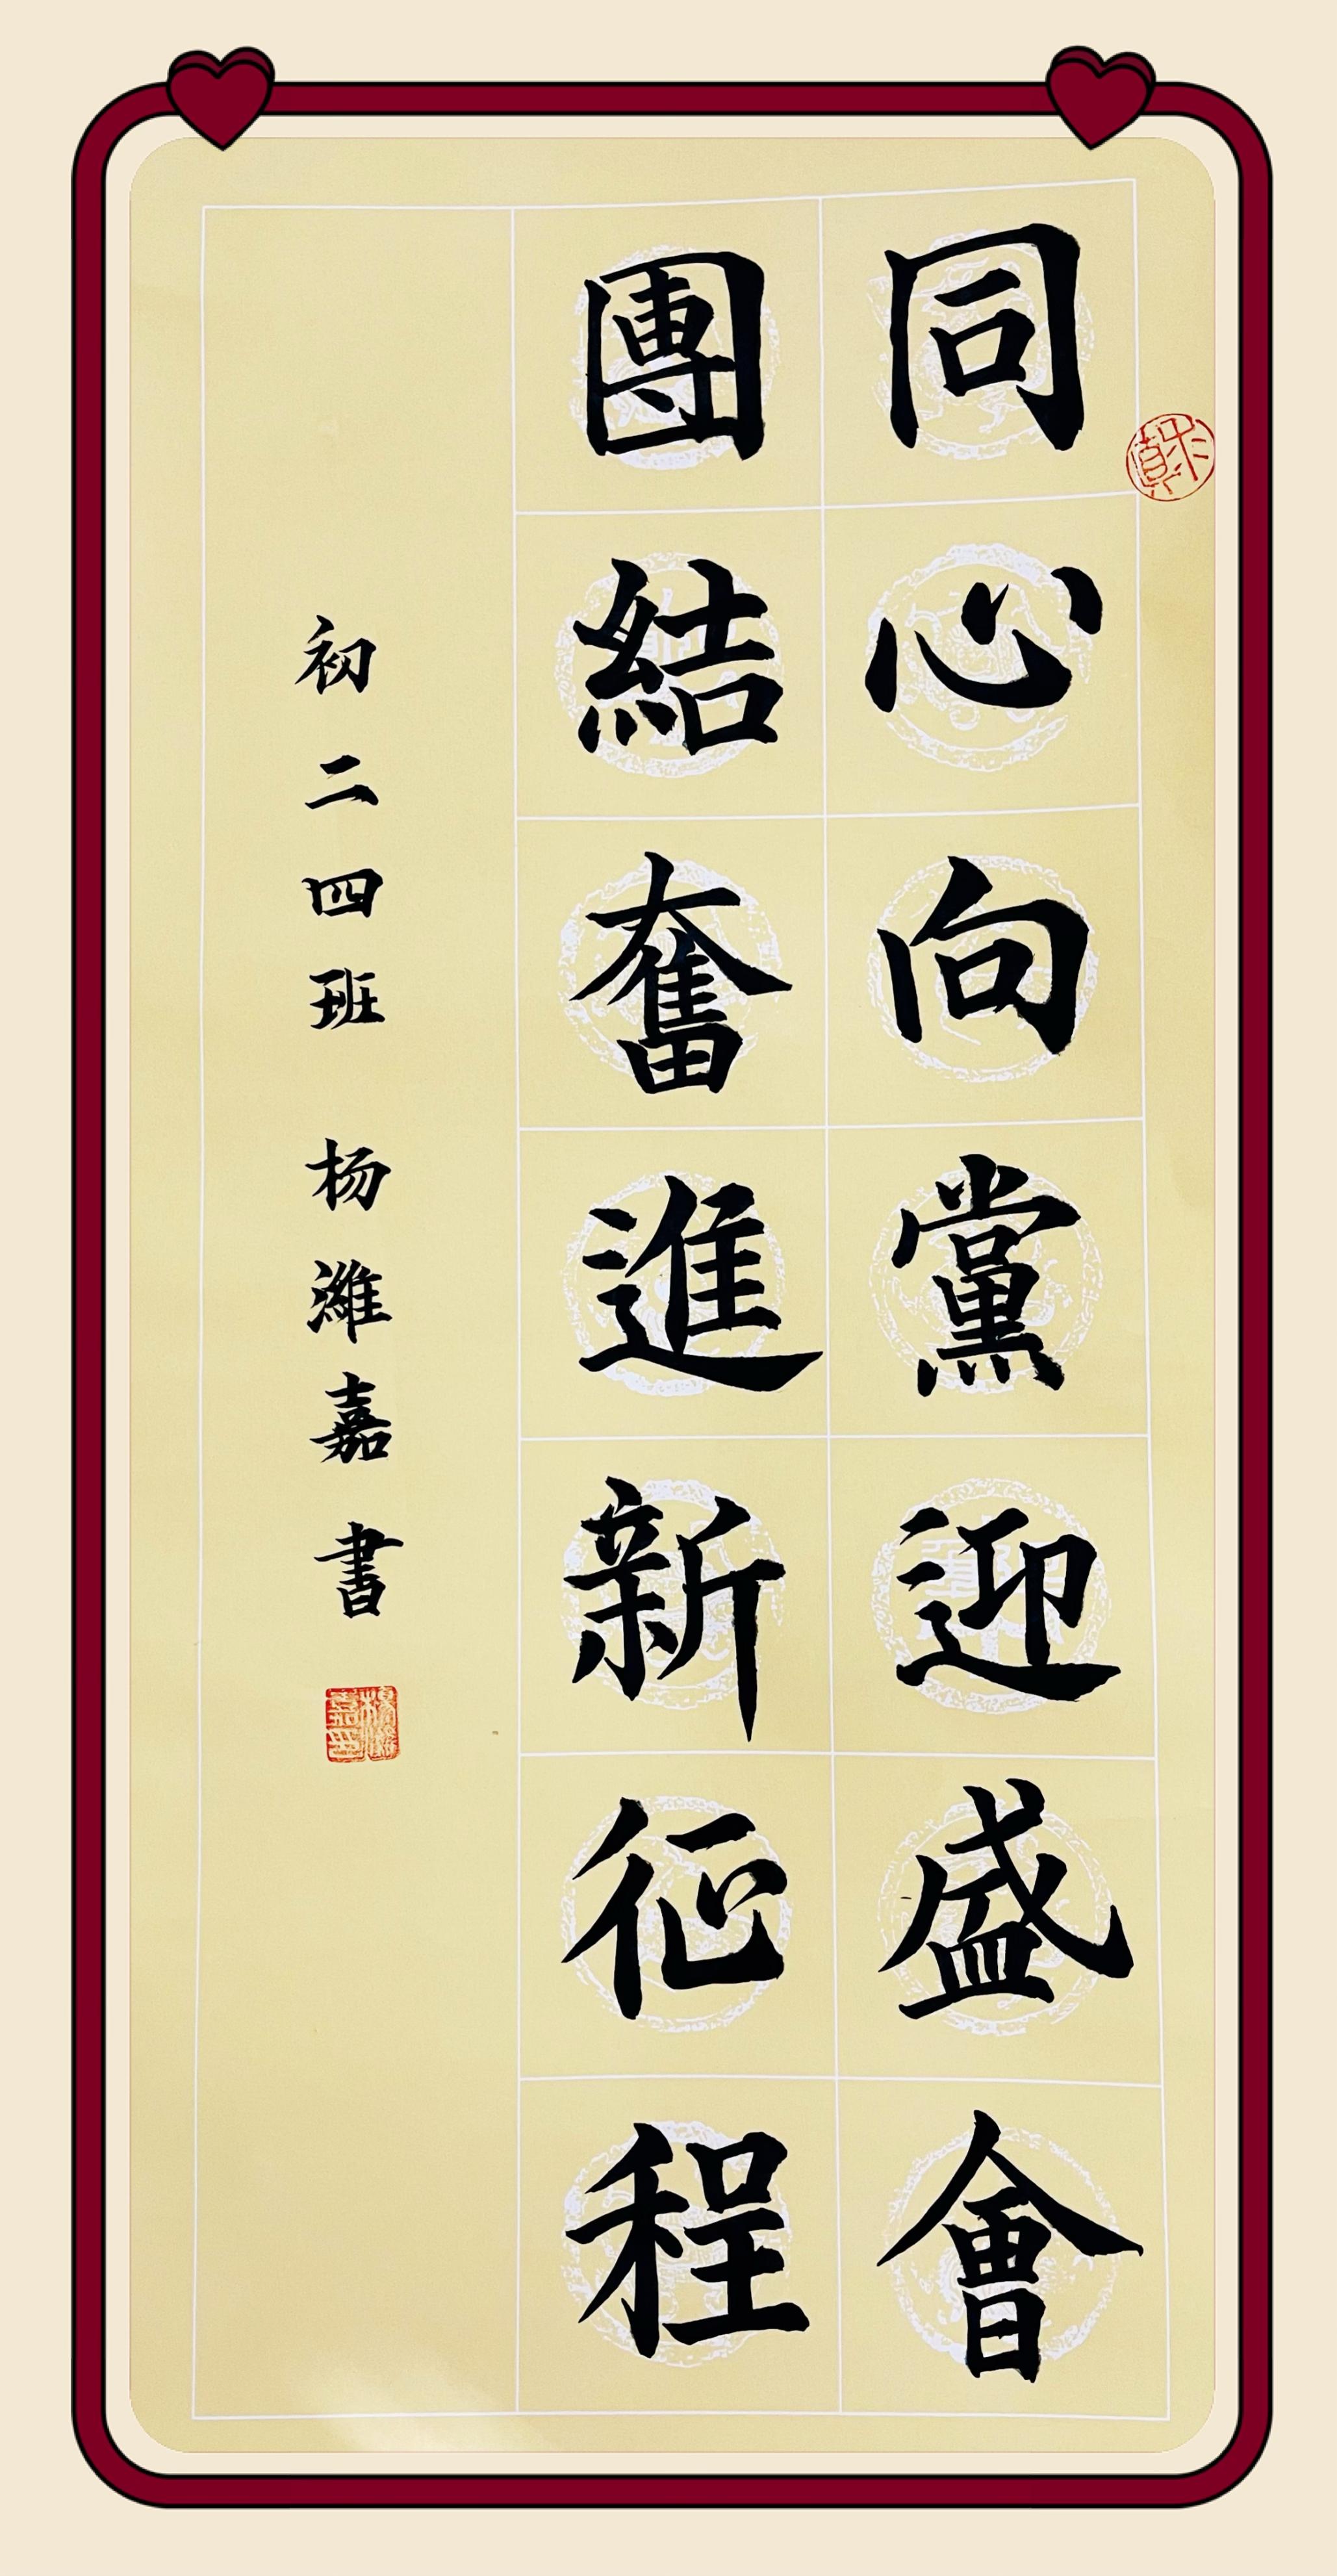 同心向黨迎盛會
團結奮進新征程
初二四班 杨濰嘉書